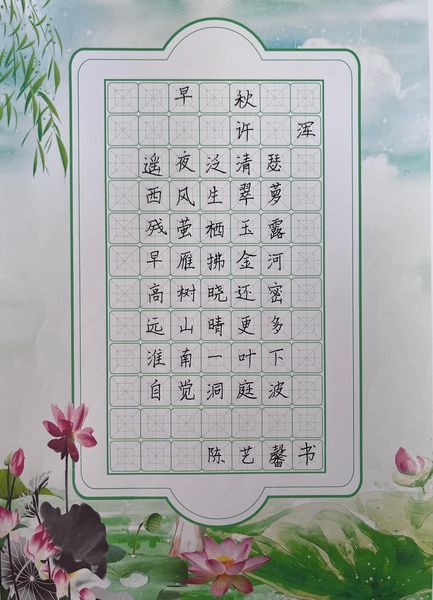 早秋
许浑
遥夜泛清瑟
西风生翠萝
残萤栖玉露
早雁拂金河
高树晓还密
远山晴更多
淮南一叶下
自觉洞庭波
陈艺馨书